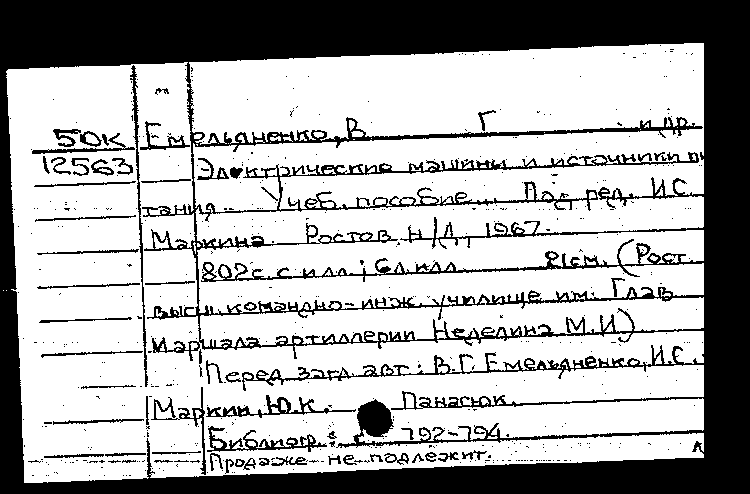 50К Емельяненко, В Г и др.
12563 Электрические машины и источники пи
тания. Учеб. пособие... Под ред. И.С.
Маркина. Ростов н/Д, 1967.
802 с. с илл.; 6 л. илл. 21см. (Рост.
высш. командно-инж. училище им. Глав.
маршала артиллерии Неделина М.И)
Перед загл. авт: В.Г. Емельяненко, И.С.
Маркин, Ю.К. Панасюк.
Библиогр.: с. 792-794.
Продаже не подлежит.